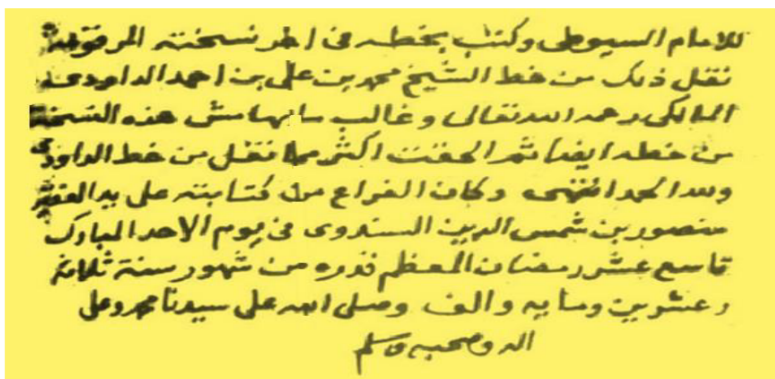 للامام السيوطي وكتب بخطه في اخر نسخته المرقومة
نقل ذلك من خط الشيخ محمد بن علي بن احمد الداودي
المالكي رحمه الله تعالى وغالب ما بهامش هذه النسخة
من خطه ايضا ثم الحقت اكثر مما نقل من خط الداودي
ولله الحمد انتهى وكان الفراغ من كتابته على يد الفقير
منصور بن شمس الدين السندوى في يوم الاحد المبارك
تاسع عشر رمضان المعظم قدره من شهور سنة ثلاثة
وعشرين ومايه والف وصلى الله على سيدنا محمد وعلى
اله وصحبه وسلم